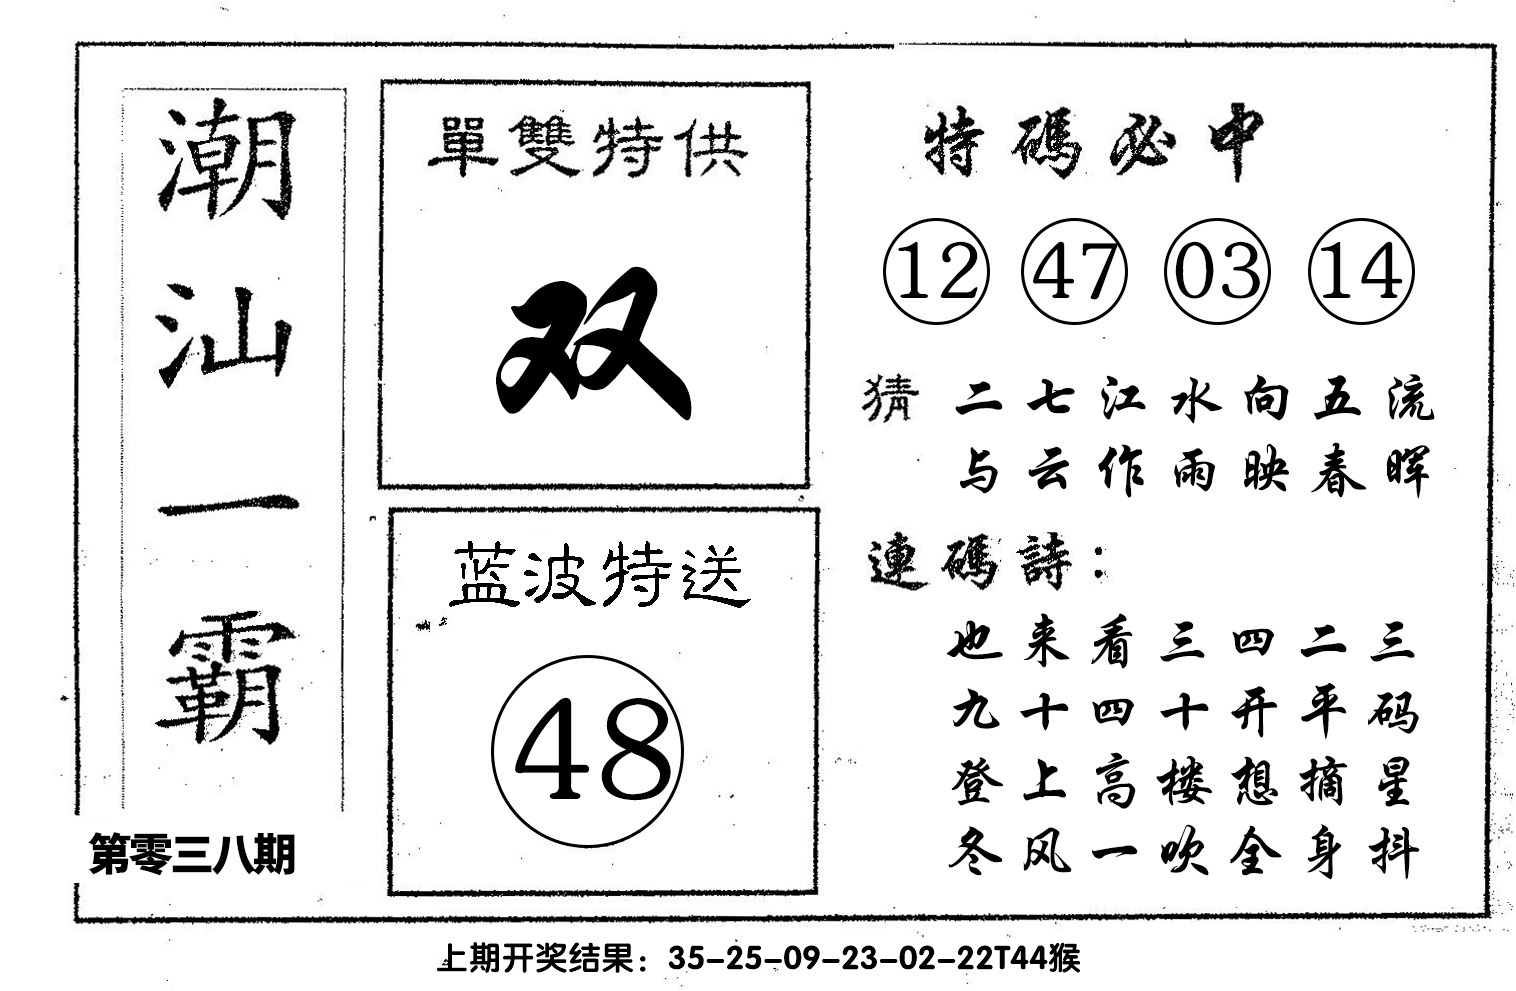 潮汕一霸
第零三八期
單雙特供
双
蓝波特送
48
特碼必中
12 47 03 14
猜 二七江水向五流
与云作雨映春晖
連碼詩：
也来看三四二三
九十四十开平码
登上高楼想摘星
冬风一吹全身抖
上期开奖结果：35-25-09-23-02-22T44猴